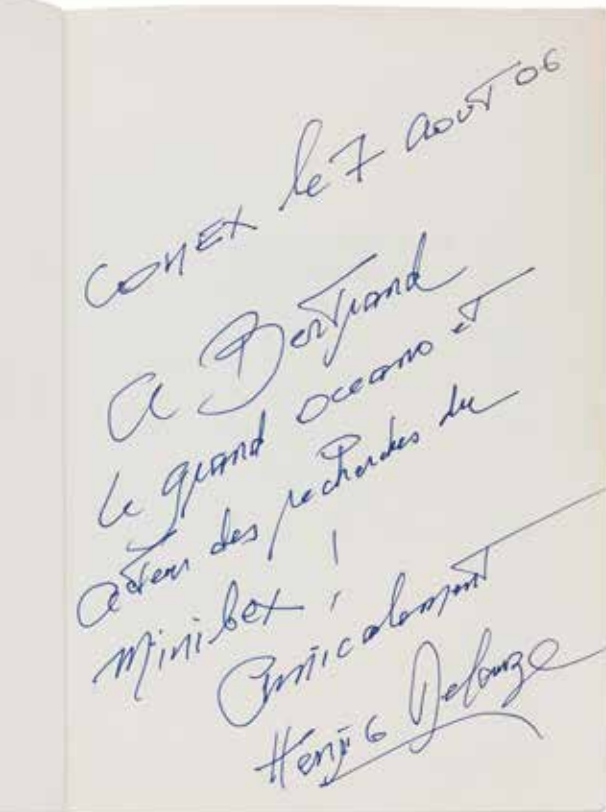 COMEX le 7 août 06
A Bertrand
le grand oceano et
acteur des recherches du
Minibex !
Amicalement
Henri G Delauze